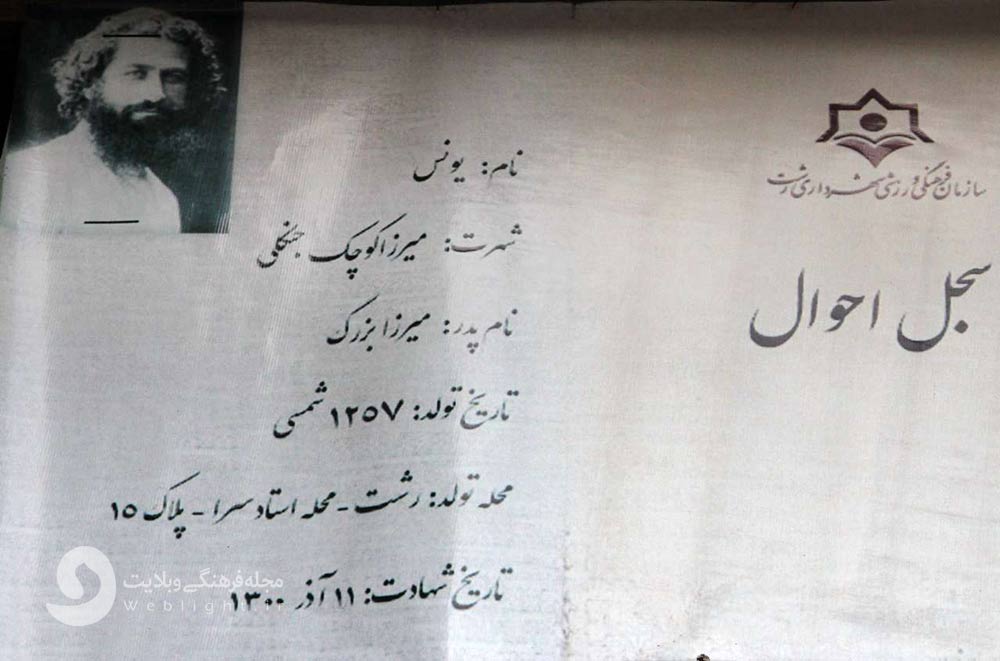 سازمان فرهنگی ورزشی شهرداری رشت
سجل احوال
نام: یونس
شهرت: میرزا کوچک جنگلی
نام پدر: میرزا بزرگ
تاریخ تولد: ۱۲۵۷ شمسی
محله تولد: رشت - محله استاد سرا - پلاک ۱۵
تاریخ شهادت: ۱۱ آذر ۱۳۰۰
مجله فرهنگی وبلایت
Weblight.ir